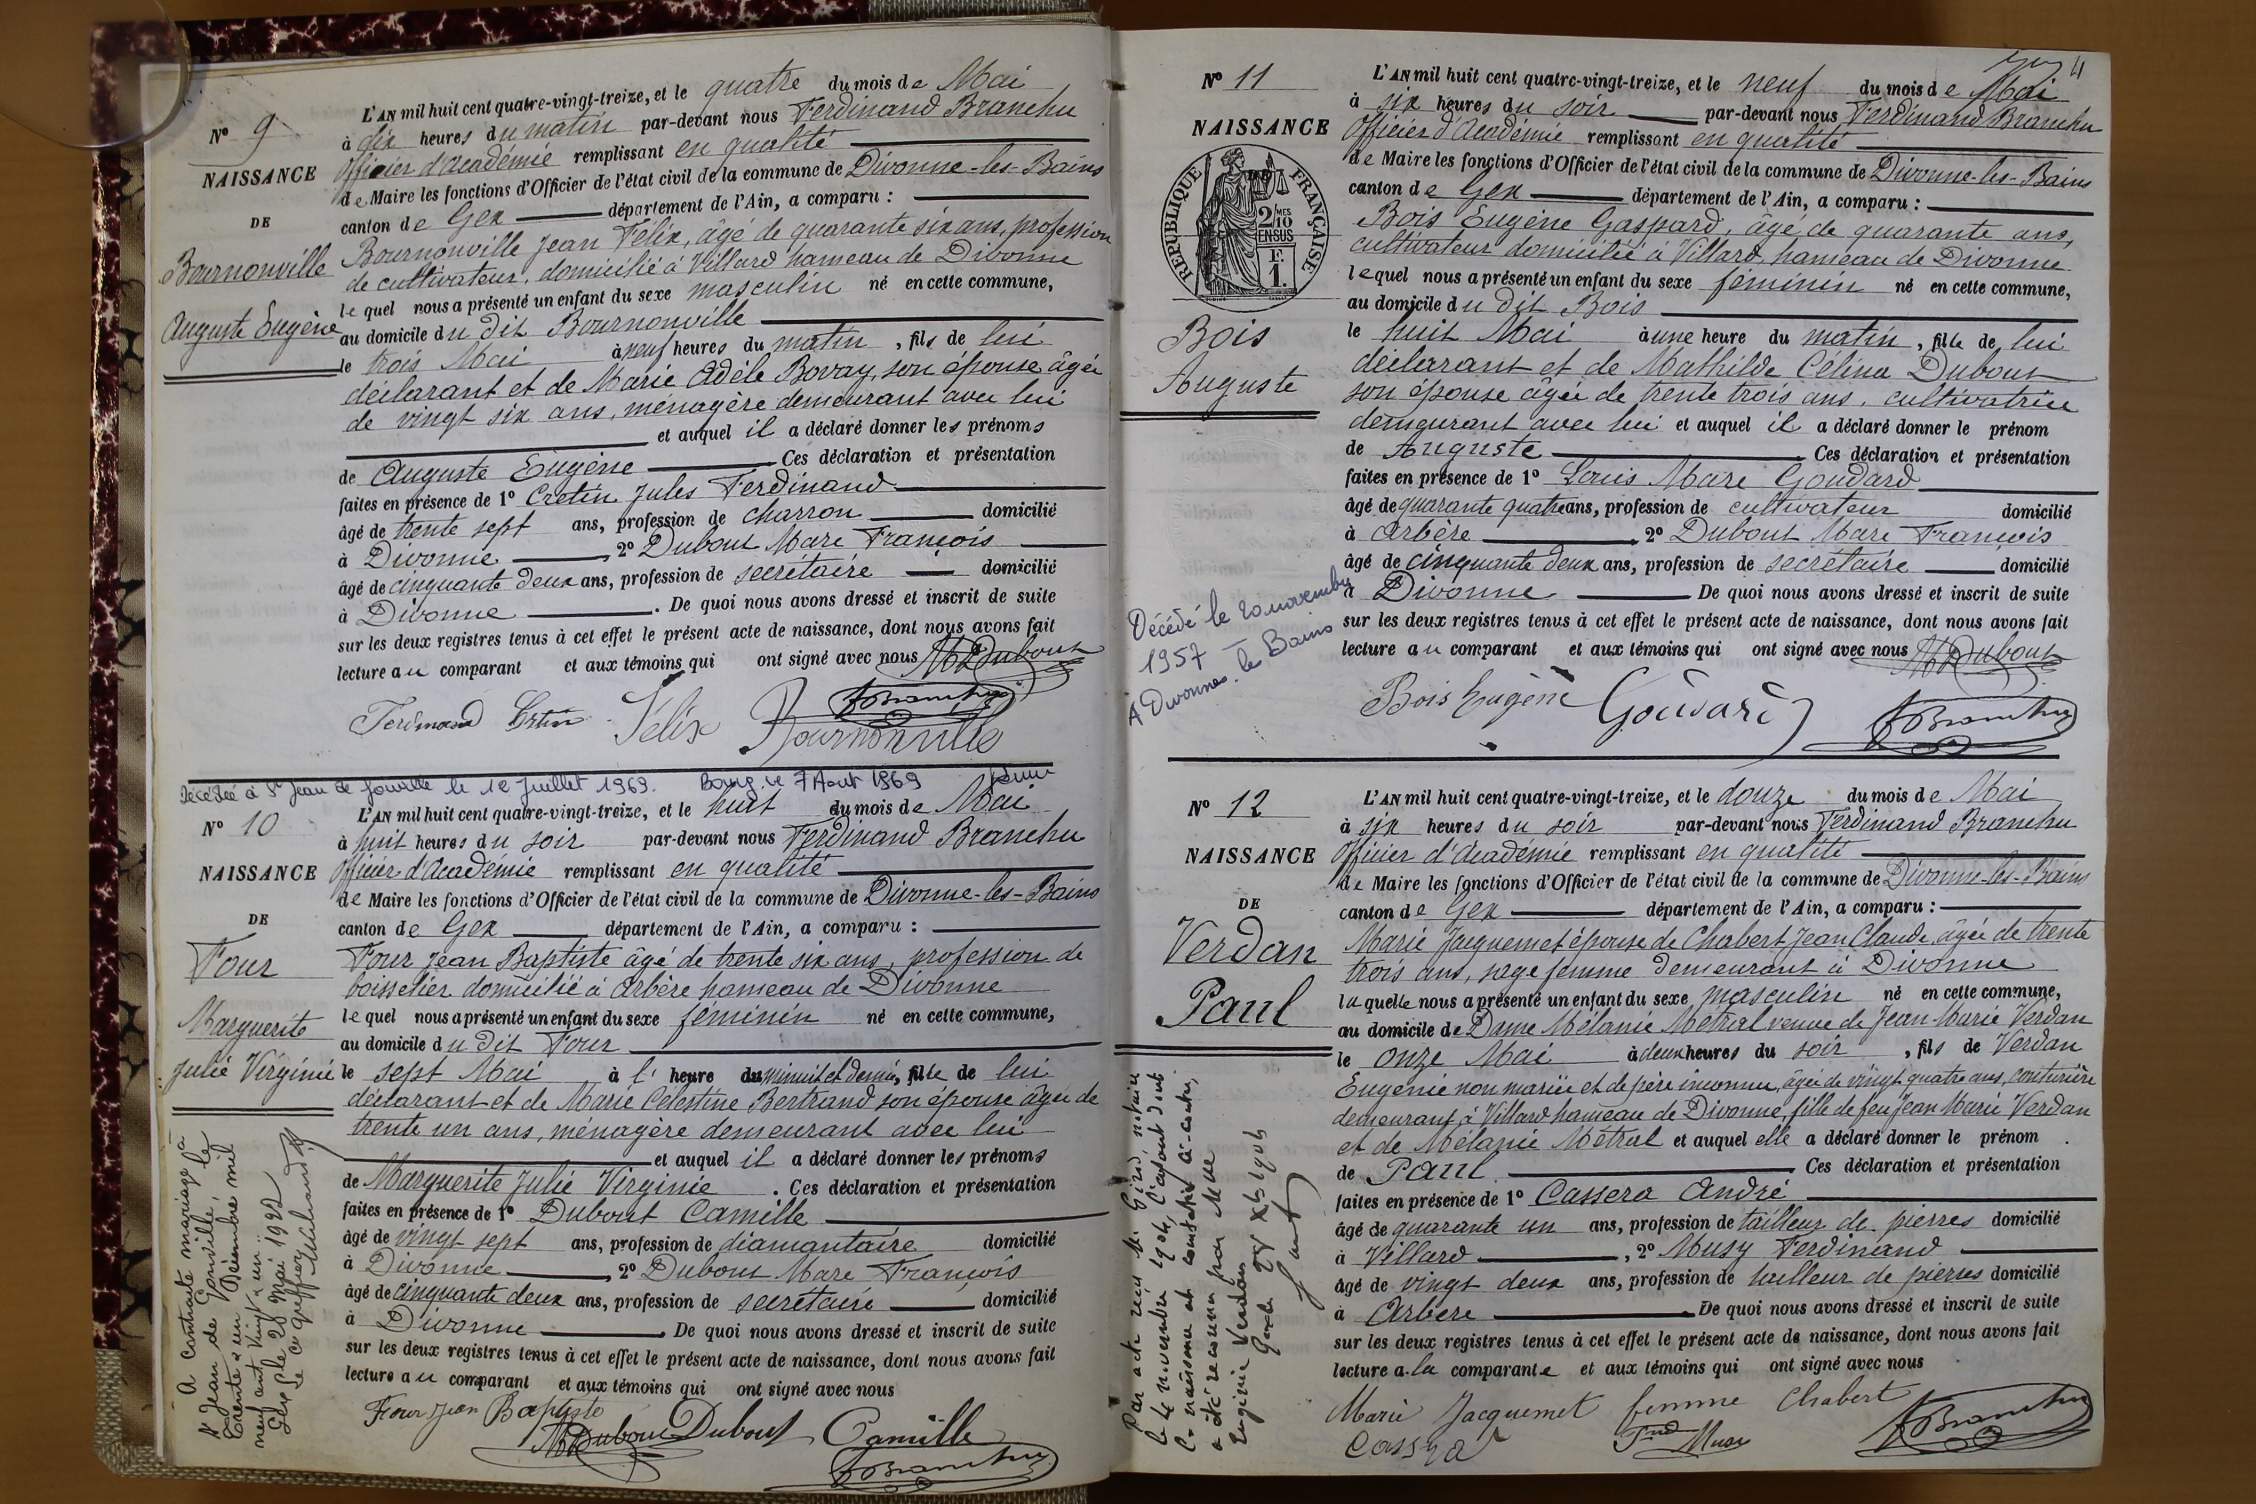 N° 9
NAISSANCE
DE
Bournonville
Auguste Eugène
L'AN mil huit cent quatre-vingt-treize, et le quatre du mois de Mai
à dix heures du matin par-devant nous Ferdinand Branchu
Officier d'Académie remplissant en qualité
de Maire les fonctions d'Officier de l'état civil de la commune de Divonne-les-Bains
canton de Gex département de l'Ain, a comparu :
Bournonville Jean Félix, âgé de quarante six ans, profession
de cultivateur, domicilié à Villard hameau de Divonne
lequel nous a présenté un enfant du sexe masculin né en cette commune,
au domicile du dit Bournonville
le trois Mai à neuf heures du matin, fils de lui
déclarant et de Marie Adèle Bovay, son épouse âgée
de vingt six ans, ménagère demeurant avec lui
et auquel il a déclaré donner les prénoms
de Auguste Eugène Ces déclaration et présentation
faites en présence de 1° Cretin Jules Ferdinand
âgé de trente sept ans, profession de charron domicilié
à Divonne, 2° Dubout Marc François
âgé de cinquante deux ans, profession de secrétaire domicilié
à Divonne. De quoi nous avons dressé et inscrit de suite
sur les deux registres tenus à cet effet le présent acte de naissance, dont nous avons fait
lecture au comparant et aux témoins qui ont signé avec nous MDubout
FBranchu
Ferdinand Crtin Félix Bournonville
Décédée à St Jean de Gonville le 12 Juillet 1969. Bourg, le 7 Aout 1969
N° 10
NAISSANCE
DE
Four
Marguerite
Julie Virginie
L'AN mil huit cent quatre-vingt-treize, et le huit du mois de Mai
à huit heures du soir par-devant nous Ferdinand Branchu
Officier d'Académie remplissant en qualité
de Maire les fonctions d'Officier de l'état civil de la commune de Divonne-les-Bains
canton de Gex département de l'Ain, a comparu :
Four Jean Baptiste âgé de trente six ans, profession de
boisselier domicilié à Arbère hameau de Divonne
lequel nous a présenté un enfant du sexe féminin né en cette commune,
au domicile du dit Four
le sept Mai à l' heure du minuit et demie, fille de lui
déclarant et de Marie Célestine Bertrand son épouse âgée de
trente un ans, ménagère demeurant avec lui
et auquel il a déclaré donner les prénoms
de Marguerite Julie Virginie. Ces déclaration et présentation
faites en présence de 1° Dubout Camille
âgé de vingt sept ans, profession de diamantaire domicilié
à Divonne, 2° Dubout Marc François
âgé de cinquante deux ans, profession de secrétaire domicilié
à Divonne. De quoi nous avons dressé et inscrit de suite
sur les deux registres tenus à cet effet le présent acte de naissance, dont nous avons fait
lecture au comparant et aux témoins qui ont signé avec nous
Four Jean Baptiste
MDubout Dubout Camille
FBranchu
A contracté mariage à
St Jean de Gonville le
trente un Décembre mil
neuf cent vingt un.
Gex le 20 Mai 1922
Le Greffier
4
N° 11
NAISSANCE
RÉPUBLIQUE FRANÇAISE
2/10 MES
EN SUS
F.
1.
Bois
Auguste
L'AN mil huit cent quatre-vingt-treize, et le neuf du mois de Mai
à six heures du soir par-devant nous Ferdinand Branchu
Officier d'Académie remplissant en qualité
de Maire les fonctions d'Officier de l'état civil de la commune de Divonne-les-Bains
canton de Gex département de l'Ain, a comparu :
Bois Eugène Gaspard, âgé de quarante ans,
cultivateur domicilié à Villard, hameau de Divonne
lequel nous a présenté un enfant du sexe féminin né en cette commune,
au domicile du dit Bois
le huit Mai à une heure du matin, fille de lui
déclarant et de Mathilde Célina Dubout
son épouse âgée de trente trois ans, cultivatrice
demeurant avec lui et auquel il a déclaré donner le prénom
de Auguste Ces déclaration et présentation
faites en présence de 1° Louis Marc Goudard
âgé de quarante quatre ans, profession de cultivateur domicilié
à Arbère, 2° Dubout Marc François
âgé de cinquante deux ans, profession de secrétaire domicilié
à Divonne De quoi nous avons dressé et inscrit de suite
sur les deux registres tenus à cet effet le présent acte de naissance, dont nous avons fait
lecture au comparant et aux témoins qui ont signé avec nous MDubout
Bois Eugène Goudard FBranchu
Décédé le 20 novembre
1957
à Divonne-les Bains
N° 12
NAISSANCE
DE
Verdan
Paul
L'AN mil huit cent quatre-vingt-treize, et le douze du mois de Mai
à six heures du soir par-devant nous Ferdinand Branchu
Officier d'Académie remplissant en qualité
de Maire les fonctions d'Officier de l'état civil de la commune de Divonne-les-Bains
canton de Gex département de l'Ain, a comparu :
Marie Jacquemet épouse de Chabert Jean Claude, âgée de trente
trois ans, sage femme demeurant à Divonne
laquelle nous a présenté un enfant du sexe masculin né en cette commune,
au domicile de Dame Mélanie Métral veuve de Jean Marie Verdan
le onze Mai à deux heures du soir, fils de Verdan
Eugénie non mariée et de père inconnu, âgée de vingt quatre ans, couturière
demeurant à Villard hameau de Divonne, fille de feu Jean Marie Verdan
et de Mélanie Métral et auquel elle a déclaré donner le prénom
de Paul. Ces déclaration et présentation
faites en présence de 1° Cassera André
âgé de quarante un ans, profession de tailleur de pierres domicilié
à Villard, 2° Musy Ferdinand
âgé de vingt deux ans, profession de tailleur de pierres domicilié
à Arbère De quoi nous avons dressé et inscrit de suite
sur les deux registres tenus à cet effet le présent acte de naissance, dont nous avons fait
lecture a la comparante et aux témoins qui ont signé avec nous
Marie Jacquemet femme Chabert
FBranchu
Par acte reçu Me Girod notaire
le 4 novembre 1904, l'enfant dont
la naissance est constatée ci-contre,
a été reconnu par Mlle
Eugénie Verdan